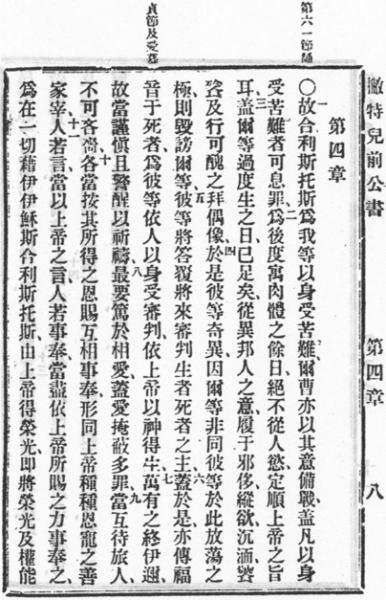 撇特兒前公書 第四章 八
第六一節隨
貞節及受
第四章
〇一故合利斯托斯爲我等以身受苦難爾曹亦以其意備戰蓋凡以身
受苦難者可息罪二爲後度寓肉體之餘日絕不從人慾定順上帝之旨
耳三蓋爾等過度生之日已足矣從異邦人之意履于邪侈縱欲沉湎饕
餮及行可醜之拜偶像四於是彼等奇異因爾等非同彼等於此放蕩之
極則毀謗爾等五彼等將答覆將來審判生者死者之主六蓋於是亦傳福
音于死者爲彼等依人以身受審判依上帝以神得生七萬有之終伊邇
故當謹慎且警醒以祈禱八最要篤於相愛蓋愛掩蔽多罪九當互待旅人
不可吝嗇十各當按其所得之恩賜互相事奉形同上帝種種恩寵之善
家宰十一人若言當以上帝之言人若事奉當盡依上帝所賜之力事奉之
爲在一切藉伊伊穌斯合利斯托斯由上帝得榮光即將榮光及權能